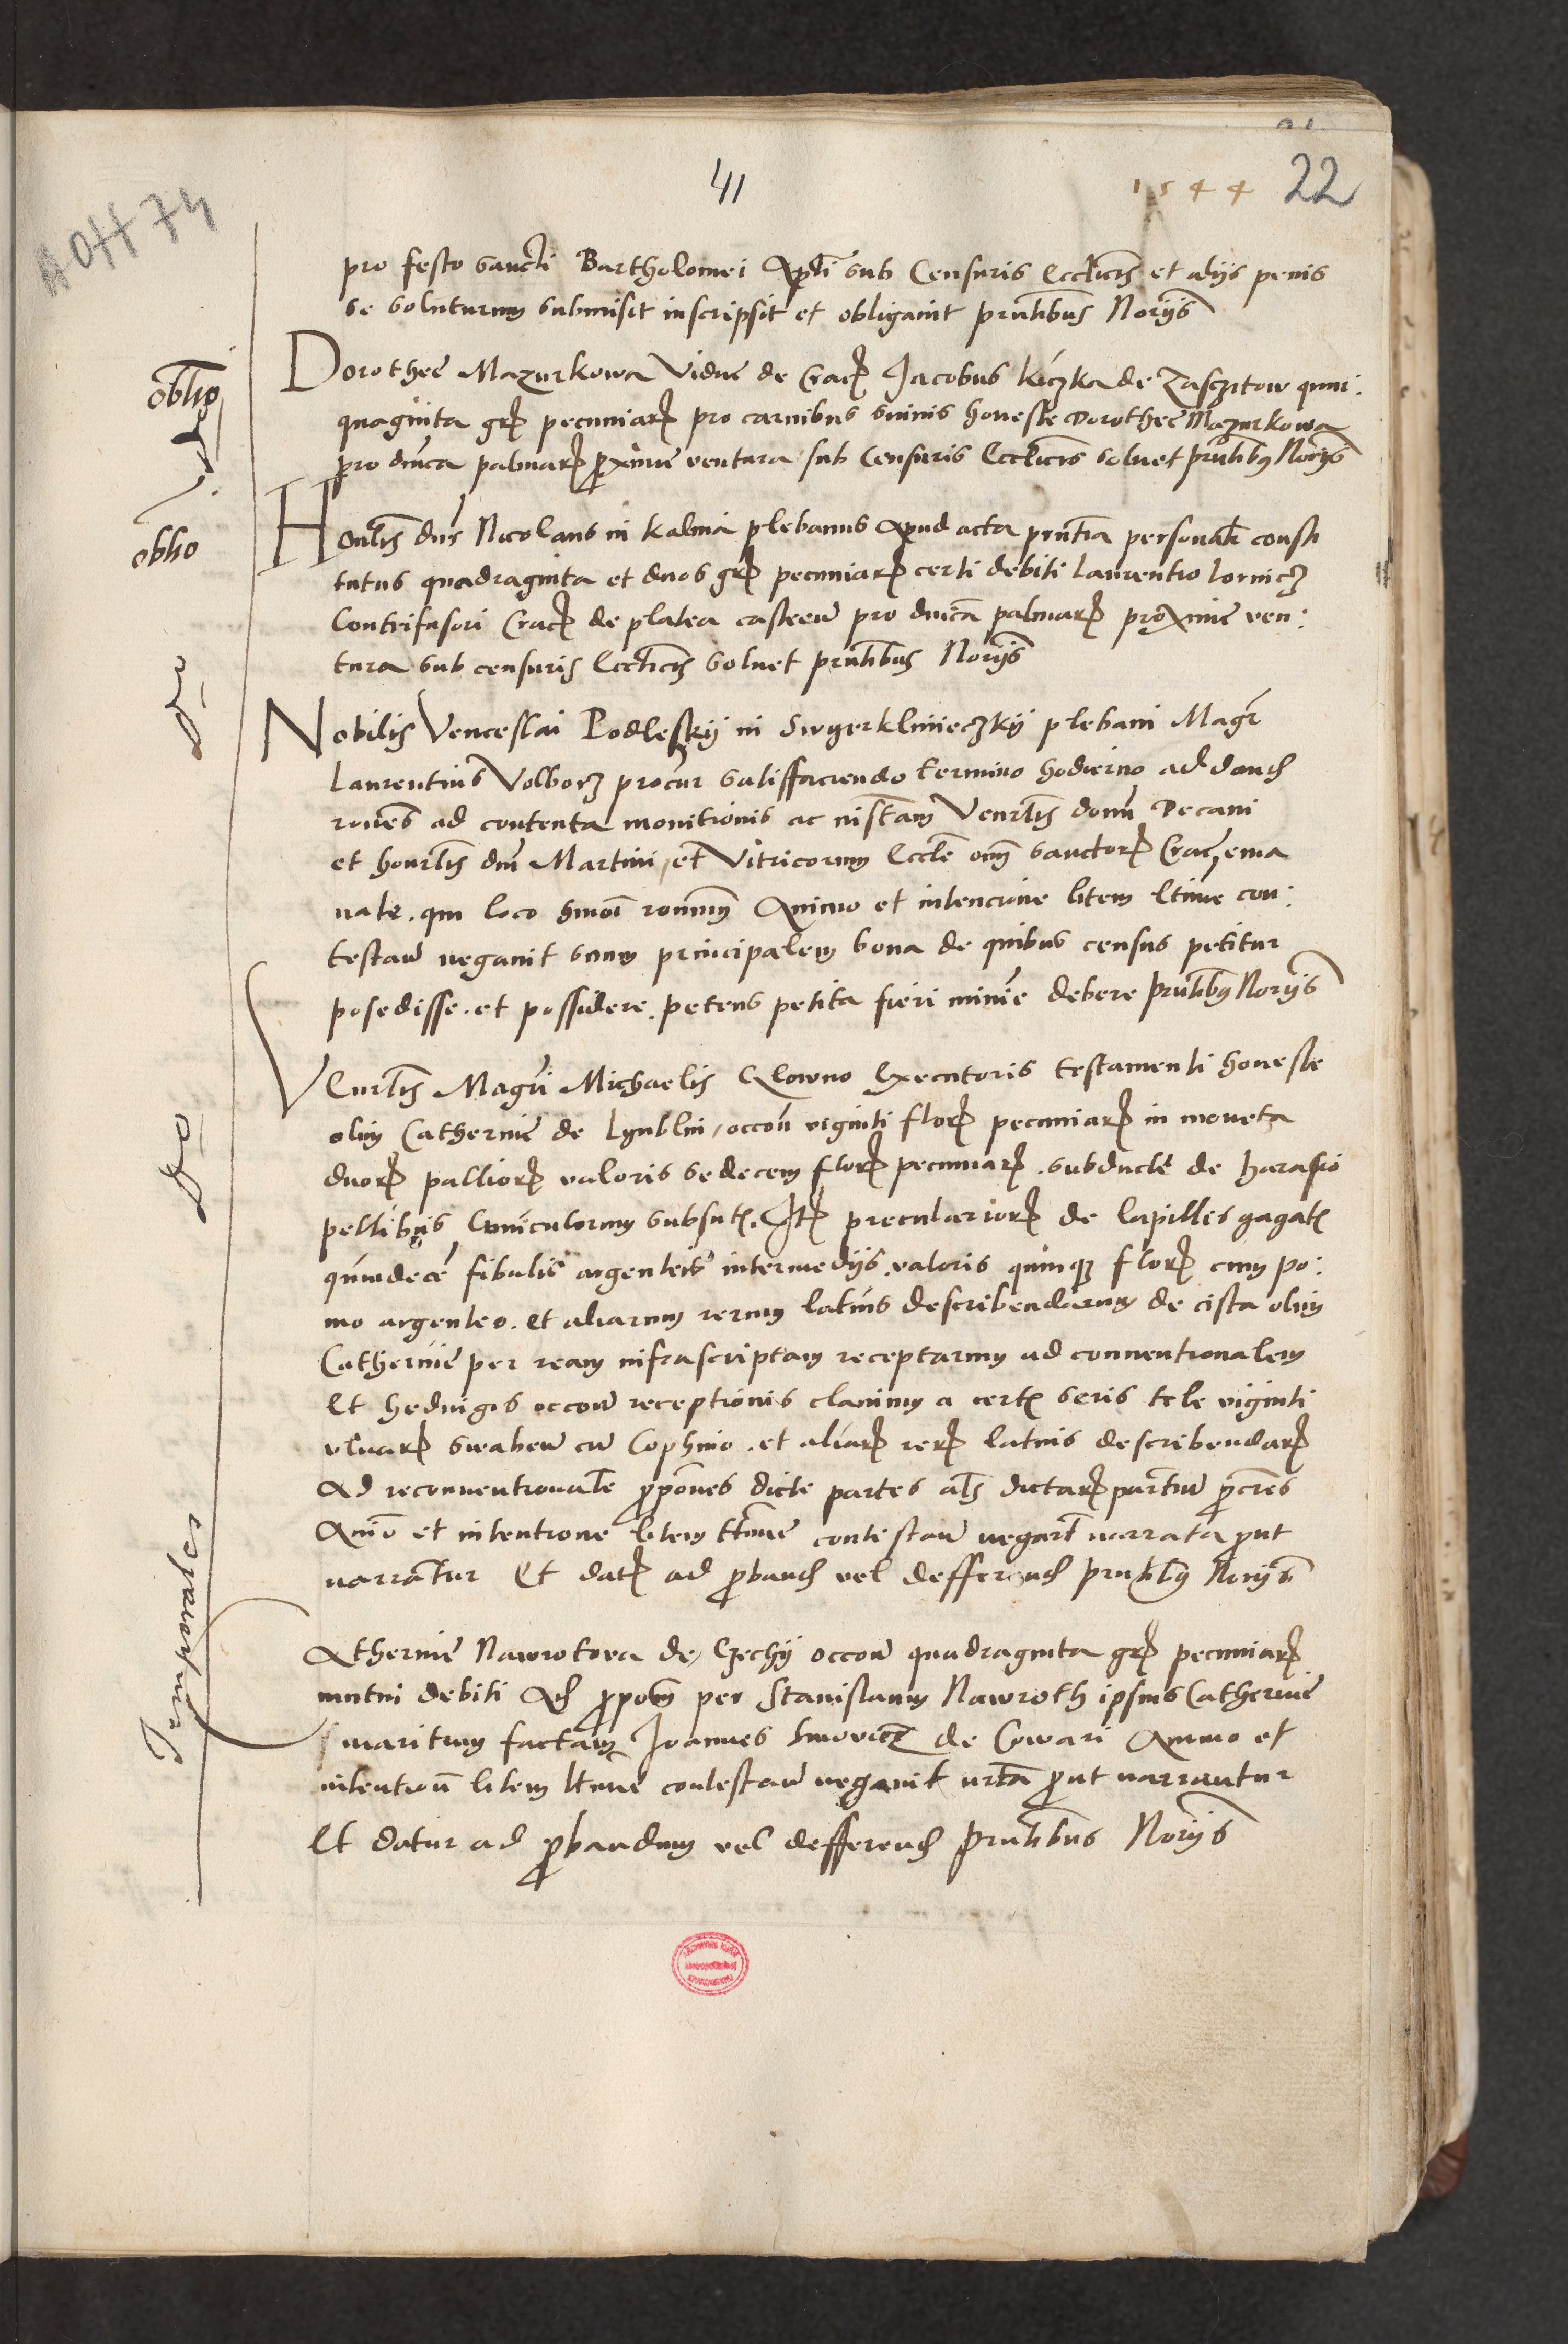 41
1544 22
AOff 74
pro festo sancti Bartholomei Apli sub Censuris Ecclicis et alijs penis
se soluturum submisit inscripsit et obligauit prntibus Norijs
oblio
Dorothee Mazurkowa Vidue de Crac Jacobus kiczka de Zasczitow quin:
quaginta grs pecuniar pro carnibus suinis honeste Dorothee Mazurkowa
pro dnica palmar proxime ventura sub Censuris Ecclicis soluet prntibus Norijs
oblio
Honblis dns Nicolaus in kalina plebanus Apud acta prntia personalr consti
tutus quadraginta et duos grs pecuniar certi debiti laurentio lornicz
Contrifusori Crac de platea castren pro dnica palmar proxime ven:
tura sub censuris Ecclicis soluet prntibus Norijs
Nobilis Venceslai Podlessky in plebani Magr
Laurentius Volborz procur satisffaciendo termino hodierno ad dand
rones ad contenta monitionis ac instam Venrlis domi Decani
et honrlis dni Martini et Vitricorum Eccle oim sanctor Crac ema
nate. qui loco hmoi ronum Animo et intencione litem ltime con:
testan negauit suum principalem bona de quibus census petitur
posedisse. et possidere. petens petita fieri minime debere prntibus Norijs
Venrlis Magri Michaelis Executoris testamenti honeste
olim Catherine de Lynblin, occon viginti flor pecuniar in moneta
duor pallior valoris sedecem flor pecuniar. subducte de harasio
pellibus Cuniculorum subsut. Itp precularior de lapillis gagat
quindecē fibulis argenteis intermedijs. valoris quinqz flor cum po:
mo argenteo. et aliarum rerum latius describendarum de cista olim
Catherine per ream infrascriptam receptarum ad conuentionalem
Et heduigis occon receptionis clauium a cert seris tele viginti
vlnar swaben cu Cophino. et aliar rer latius describendar
Ad reconuentionale propones dicte partes als dictar partiu pcres
Anio et intentione litem ltime contestan negart narrata prout
narrantur Et datr ad proband vel defferend prntibus Norijs
Temporales
Catherine Nawrotowa de Czechij occon quadraginta grs pecuniar
mutui debiti Ad propom per Stanislaum Nawroth ipsius Catherine
maritum factam Joannes de Cowari Animo et
intention litem ltime contestan negauit nrta prout narrantur
Et datur ad probandum vel defferend prntibus Norijs